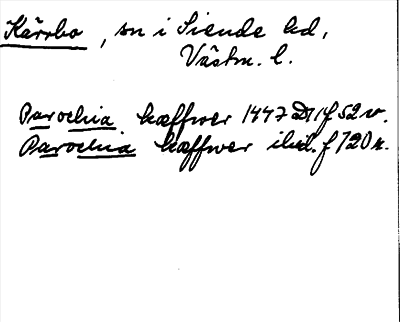 Kärrbo, sn i Siende hd,
Västm. l.
Parochia kæffwer 1447 D 14 f 52 v.
Parochia kæffwer ibid. f 120 r.